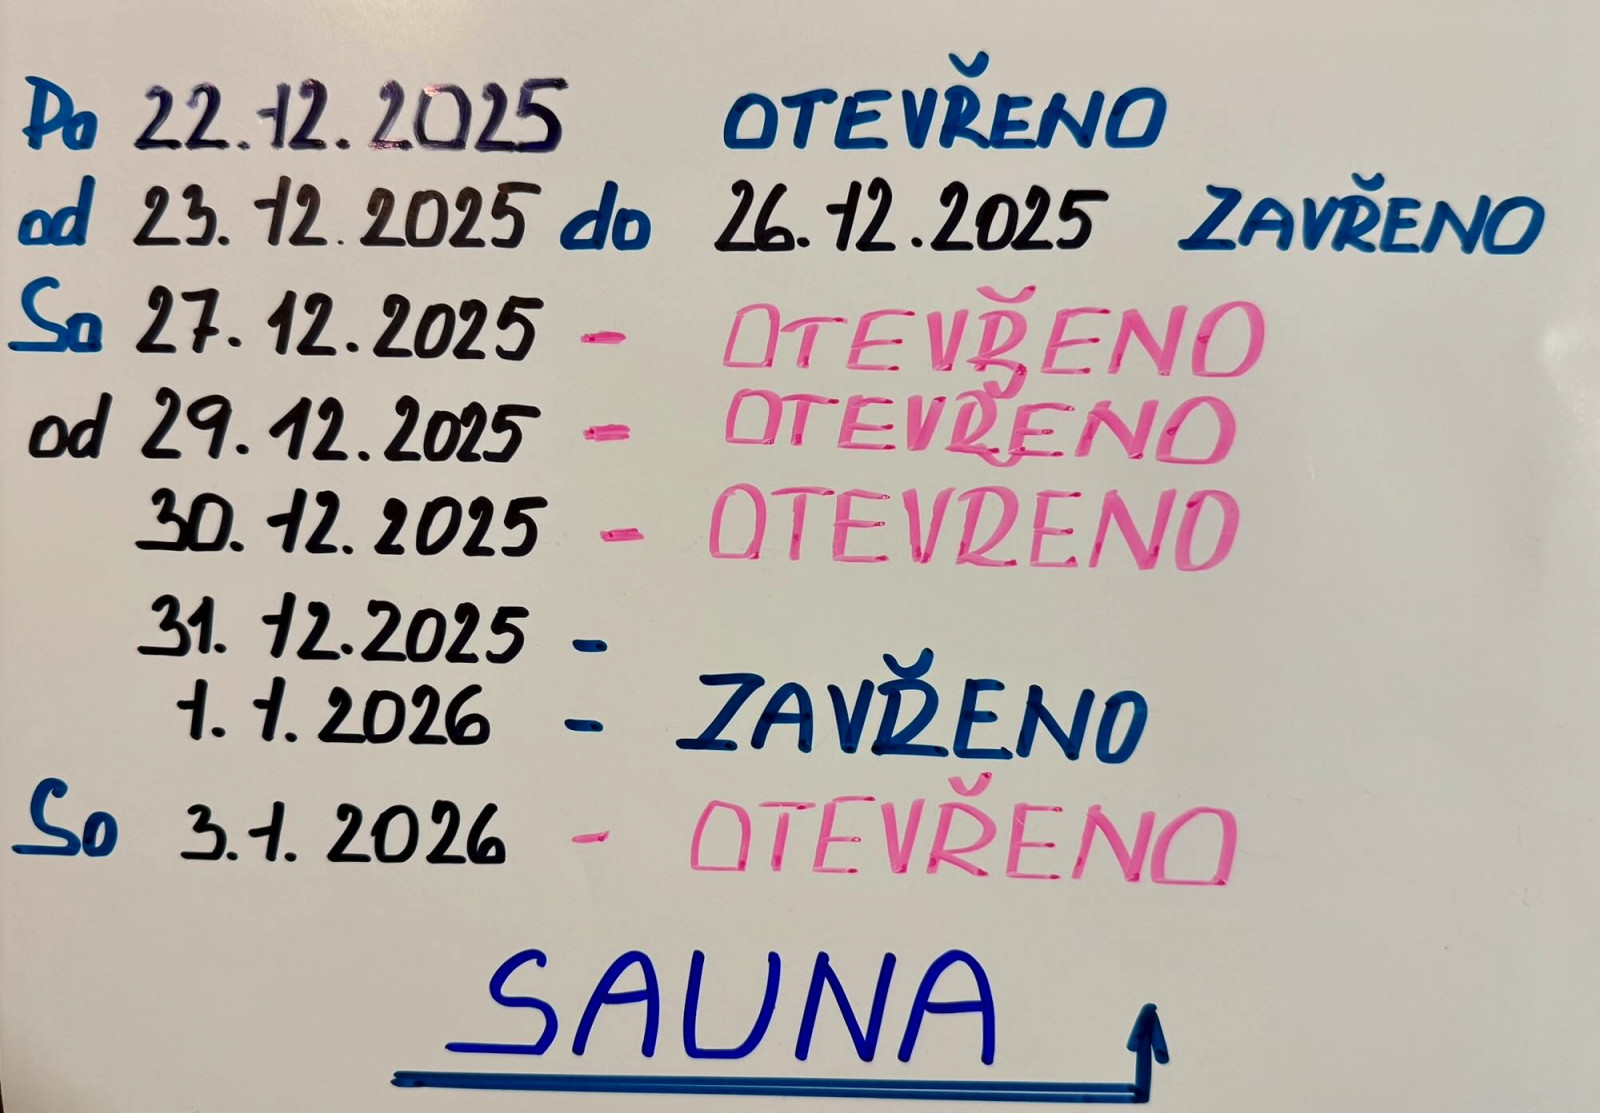 Po 22.12.2025 OTEVŘENO
od 23.12.2025 do 26.12.2025 ZAVŘENO
So 27.12.2025 - OTEVŘENO
od 29.12.2025 - OTEVŘENO
30.12.2025 - OTEVRENO
31.12.2025 -
1.1.2026 - ZAVŘENO
So 3.1.2026 - OTEVŘENO
SAUNA